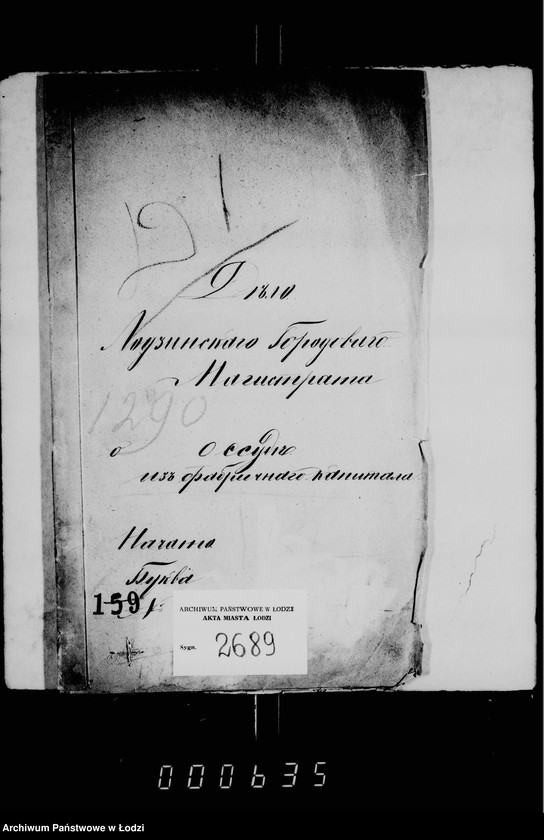 Дѣло
Лодзинскаго Городоваго
Магистрата
1290
о ссудѣ
изъ фабричнаго капитала
Начато
Буква
159
ARCHIWUM PAŃSTWOWE W ŁODZI
AKTA MIASTA ŁODZI
Sygn. 2689
000635
Archiwum Państwowe w Łodzi